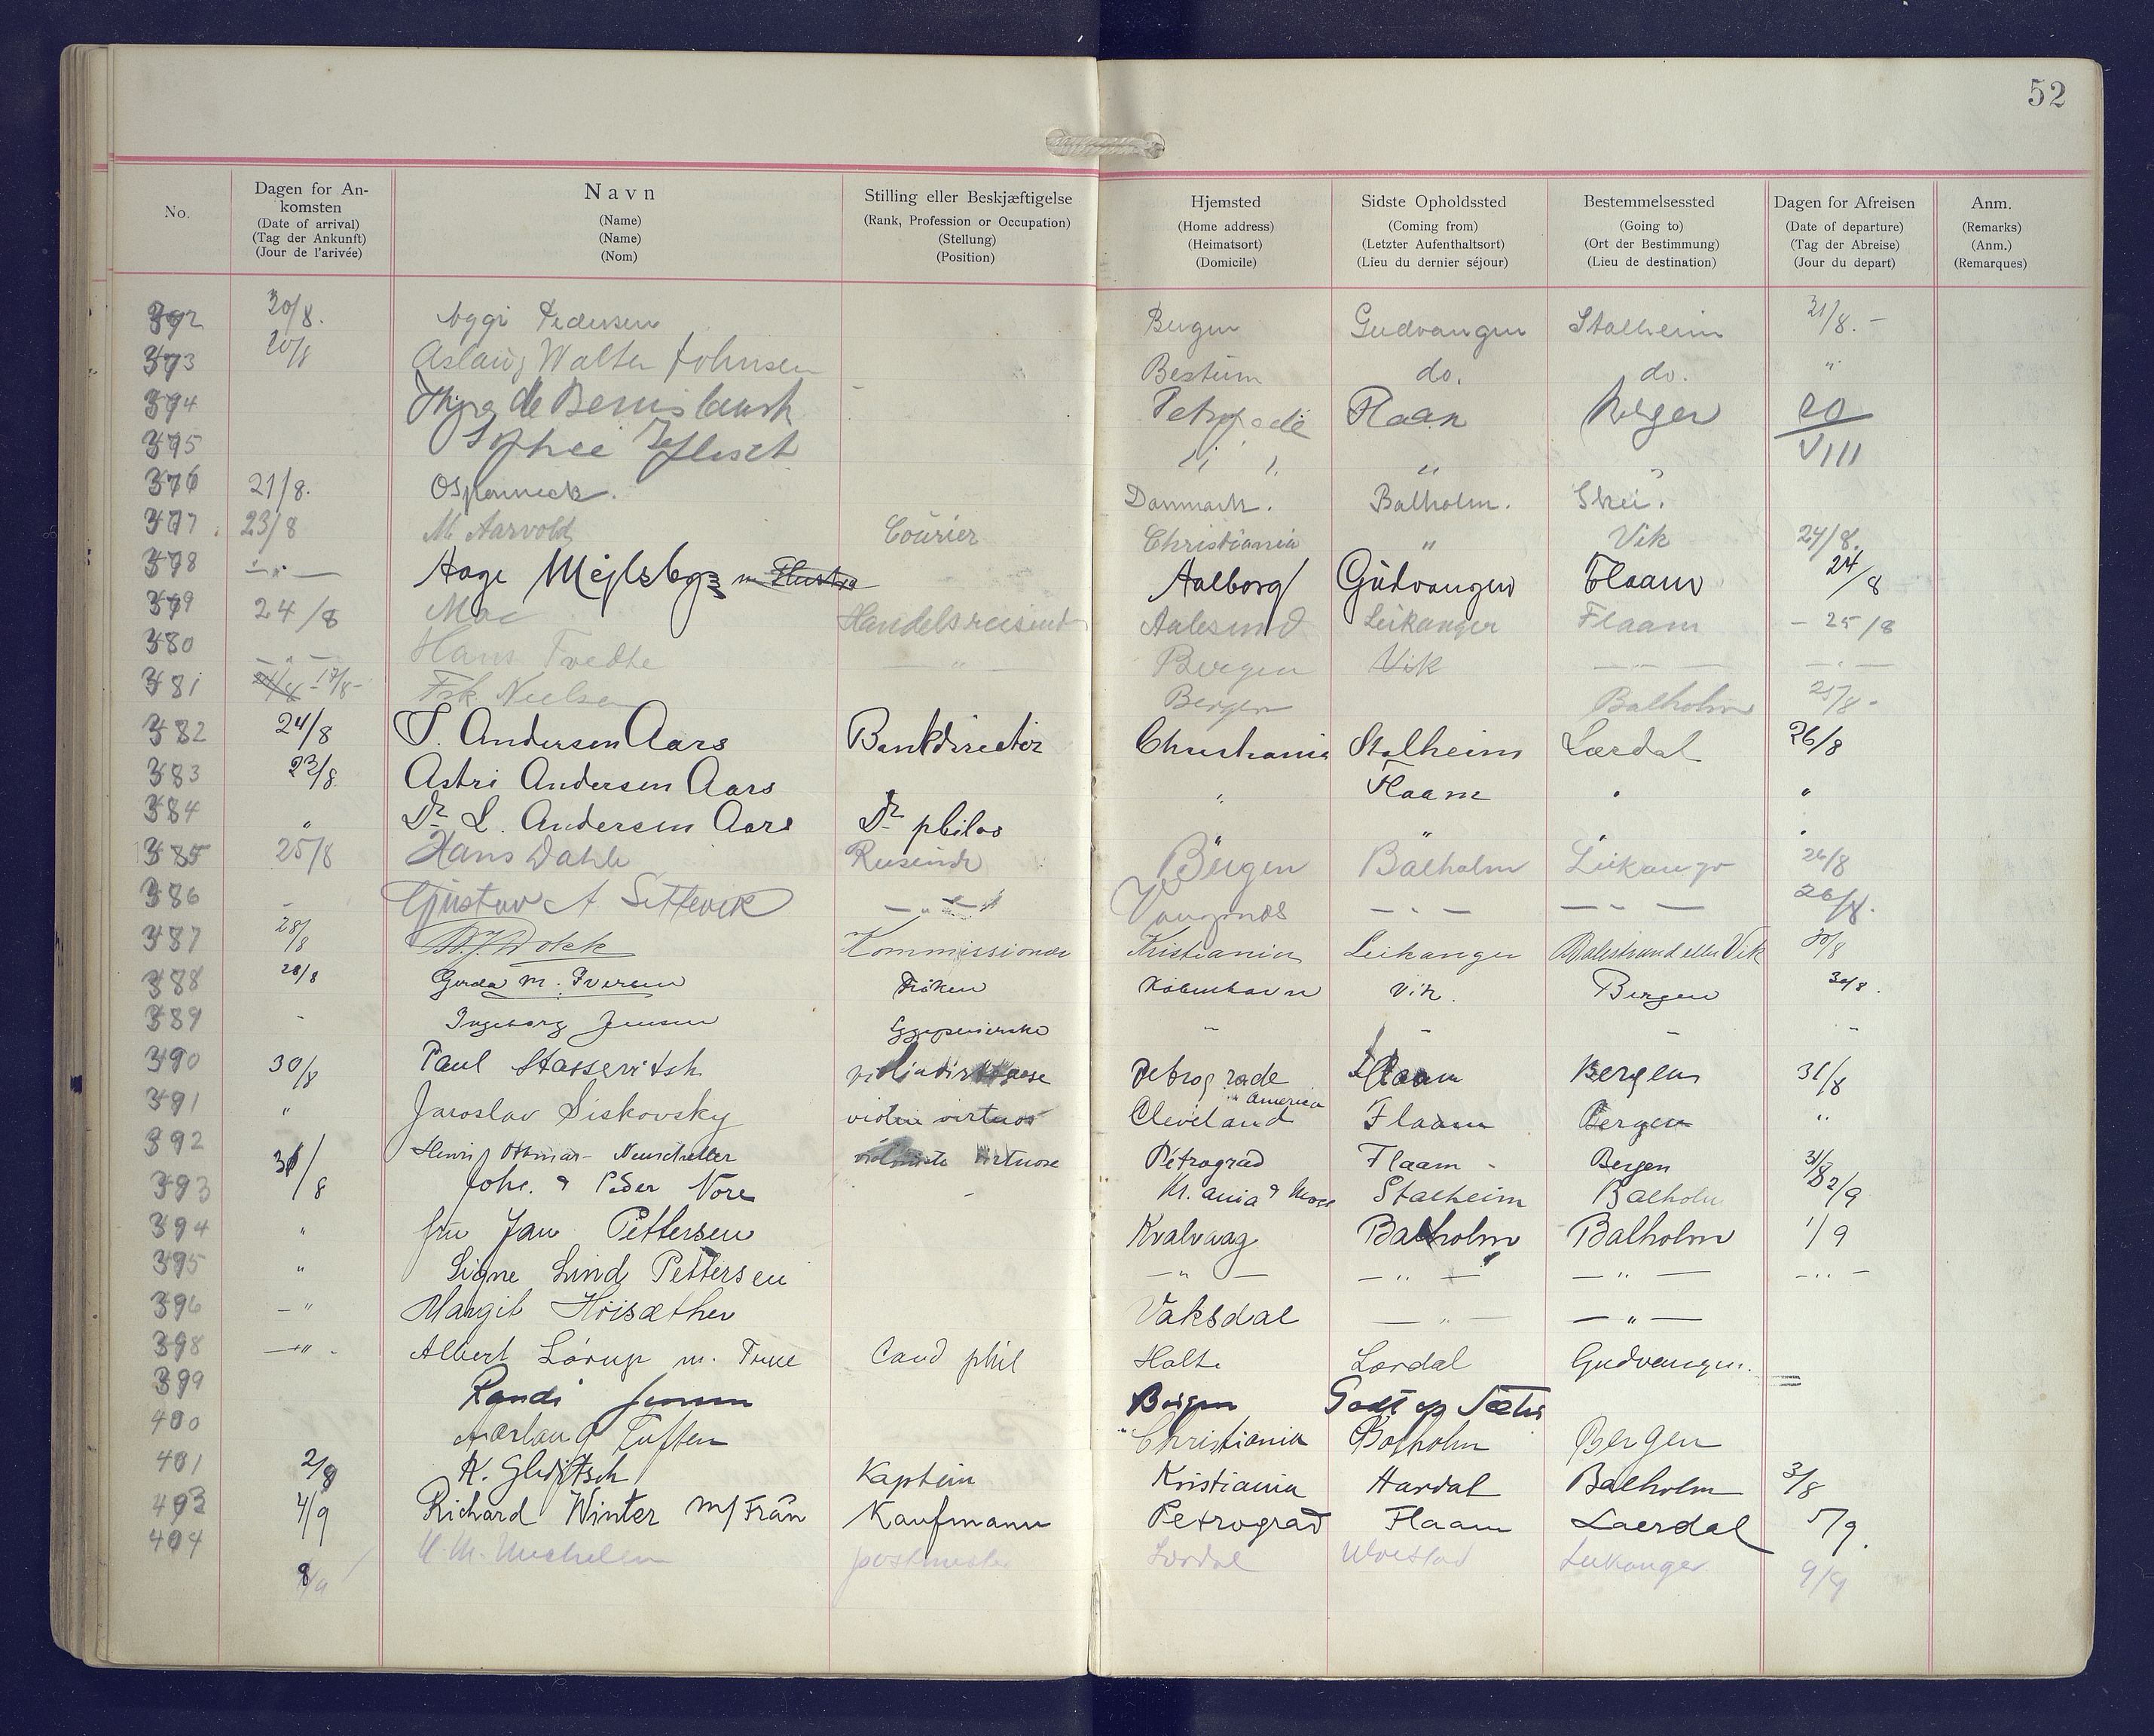 52
No. Dagen for An- Navn Stilling eller Beskjæftigelse Hjemsted Sidste Opholdssted Bestemmelsessted Dagen for Afreisen Anm.
komsten
(Date of arrival) (Name) (Rank, Profession or Occupation) (Home address) (Coming from) (Going to) (Date of departure) (Remarks)
(Tag der Ankunft) (Name) (Stellung) (Heimatsort) (Letzter Aufenthaltsort) (Ort der Bestimmung) (Tag der Abreise) (Anm.)
(Jour de l'arivée) (Nom) (Position) (Domicile) (Lieu du dernier séjour) (Lieu de destination) (Jour du depart) (Remarques)
20/8. Pedersen Bergen Gudvangen Stalheim 21/8. –
373 20/8 Aslaug Walter Johnsen Bestum do. do. "
Flaam 20
375 Sophie " " VIII
376 21/8. Danmark. Balholm. Skei.
377 23/8 M. Aarvold Courier Christiania " Vik 24/8.
378 —"— Aage Aalborg Gudvangen Flaam 24/8
379 24/8 Moe Handelsreisende Aalesund Leikanger Flaam – 25/8
380 —"— Hans Tvedte —"— Bergen Vik —"— —"—
381 Frk Nielsen Bergen Balholm 25/8-
382 24/8 S. Andersen Aars Bankdirector Christiania Stalheim Lærdal 26/8
383 23/8 Astri Andersen Aars " Flaam " "
384 " Dr L. Andersen Aars Dr philos " " " "
385 25/8 Hans Dahle Reisende Bergen Balholm Leikanger 26/8
386 – Gustav A. —"— Vangsnes —"— —"— 26/8.
387 28/8 Kommissionær Kristiania Leikanger Balestrand eller Vik 30/8
388 28/8 Gerda M. Iversen Frøken København Vik. Bergen 30/8.
389 - Ingeborg Jensen " – – –
390 30/8 Paul Stasservitsh Petrograde Flaam Bergen 31/8
391 " Jaroslav Siskovsky violin virtuos Cleveland America Flaam Bergen "
392 Henri Othmar- Neuscheller virtuose Petrograd Flaam - Bergen 31/8
393 31/8 Johs. & Peder Nore – Kr. ania & Moss Stalheim Balholm 2/9
394 " fru Jan Pettersen Kvalvaag Balholm Balholm 1/9
395 " Signe Lind Pettersen —"— —"— —"— —"—
396 –" Margit Høisæther Vaksdal —"— —"—
398 —"- Albert Lørup m. Frue Cand phil Holte Lærdal Gudvangen.
399 Randi Jensen Bergen
400 Christiania Balholm Bergen
401 2/9 K. Gleditsch Kaptein Kristiania Aardal Balholm 3/8
403 4/9 Richard Winter m/ Kaufmann Petrograd Flaam Laerdal 5/9.
404 8/9 postmester Lærdal Leikanger 9/9